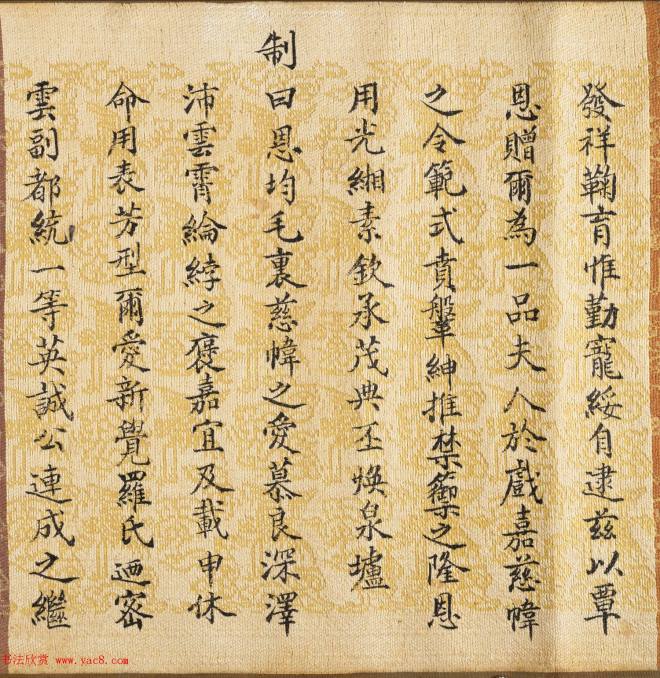 發祥鞠育惟勤寵綏自逮茲以覃
恩贈爾為一品夫人於戲嘉慈幃
之令範式賁鞶紳推禁籞之隆恩
用光緗素欽承茂典丕煥泉壚
制
曰恩均毛裏慈幃之愛慕良深澤
沛雲霄綸綍之褒嘉宜及載申休
命用表芳型爾愛新覺羅氏迺密
雲副都統一等英誠公連成之繼
书法欣赏 www.yac8.com